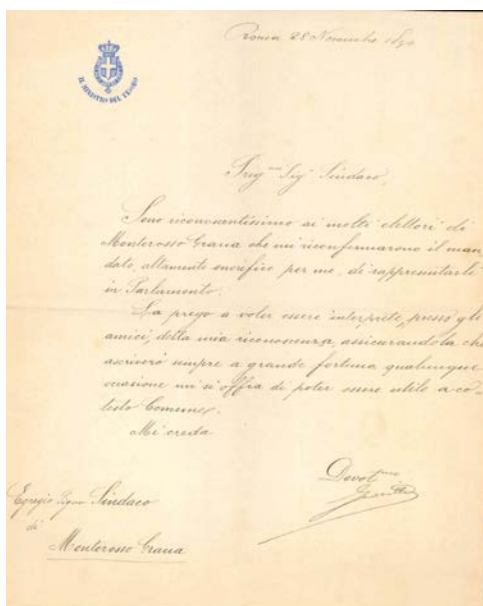 Roma 28 Novembre 1890
IL MINISTRO DEL TESORO
Preg.mo Sig.r Sindaco,
Sono riconoscentissimo ai molti elettori di
Monterosso Grana che mi riconfermarono il man-
dato, altamente onorifico per me, di rappresentarli
in Parlamento.
La prego a voler essere interprete, presso gli
amici, della mia riconoscenza, assicurandola che
ascriverò sempre a grande fortuna qualunque
occasione mi si offra di poter essere utile a co-
testo Comune.
Mi creda
Devot.mo
Giolitti
Egregio Signor Sindaco
di
Monterosso Grana